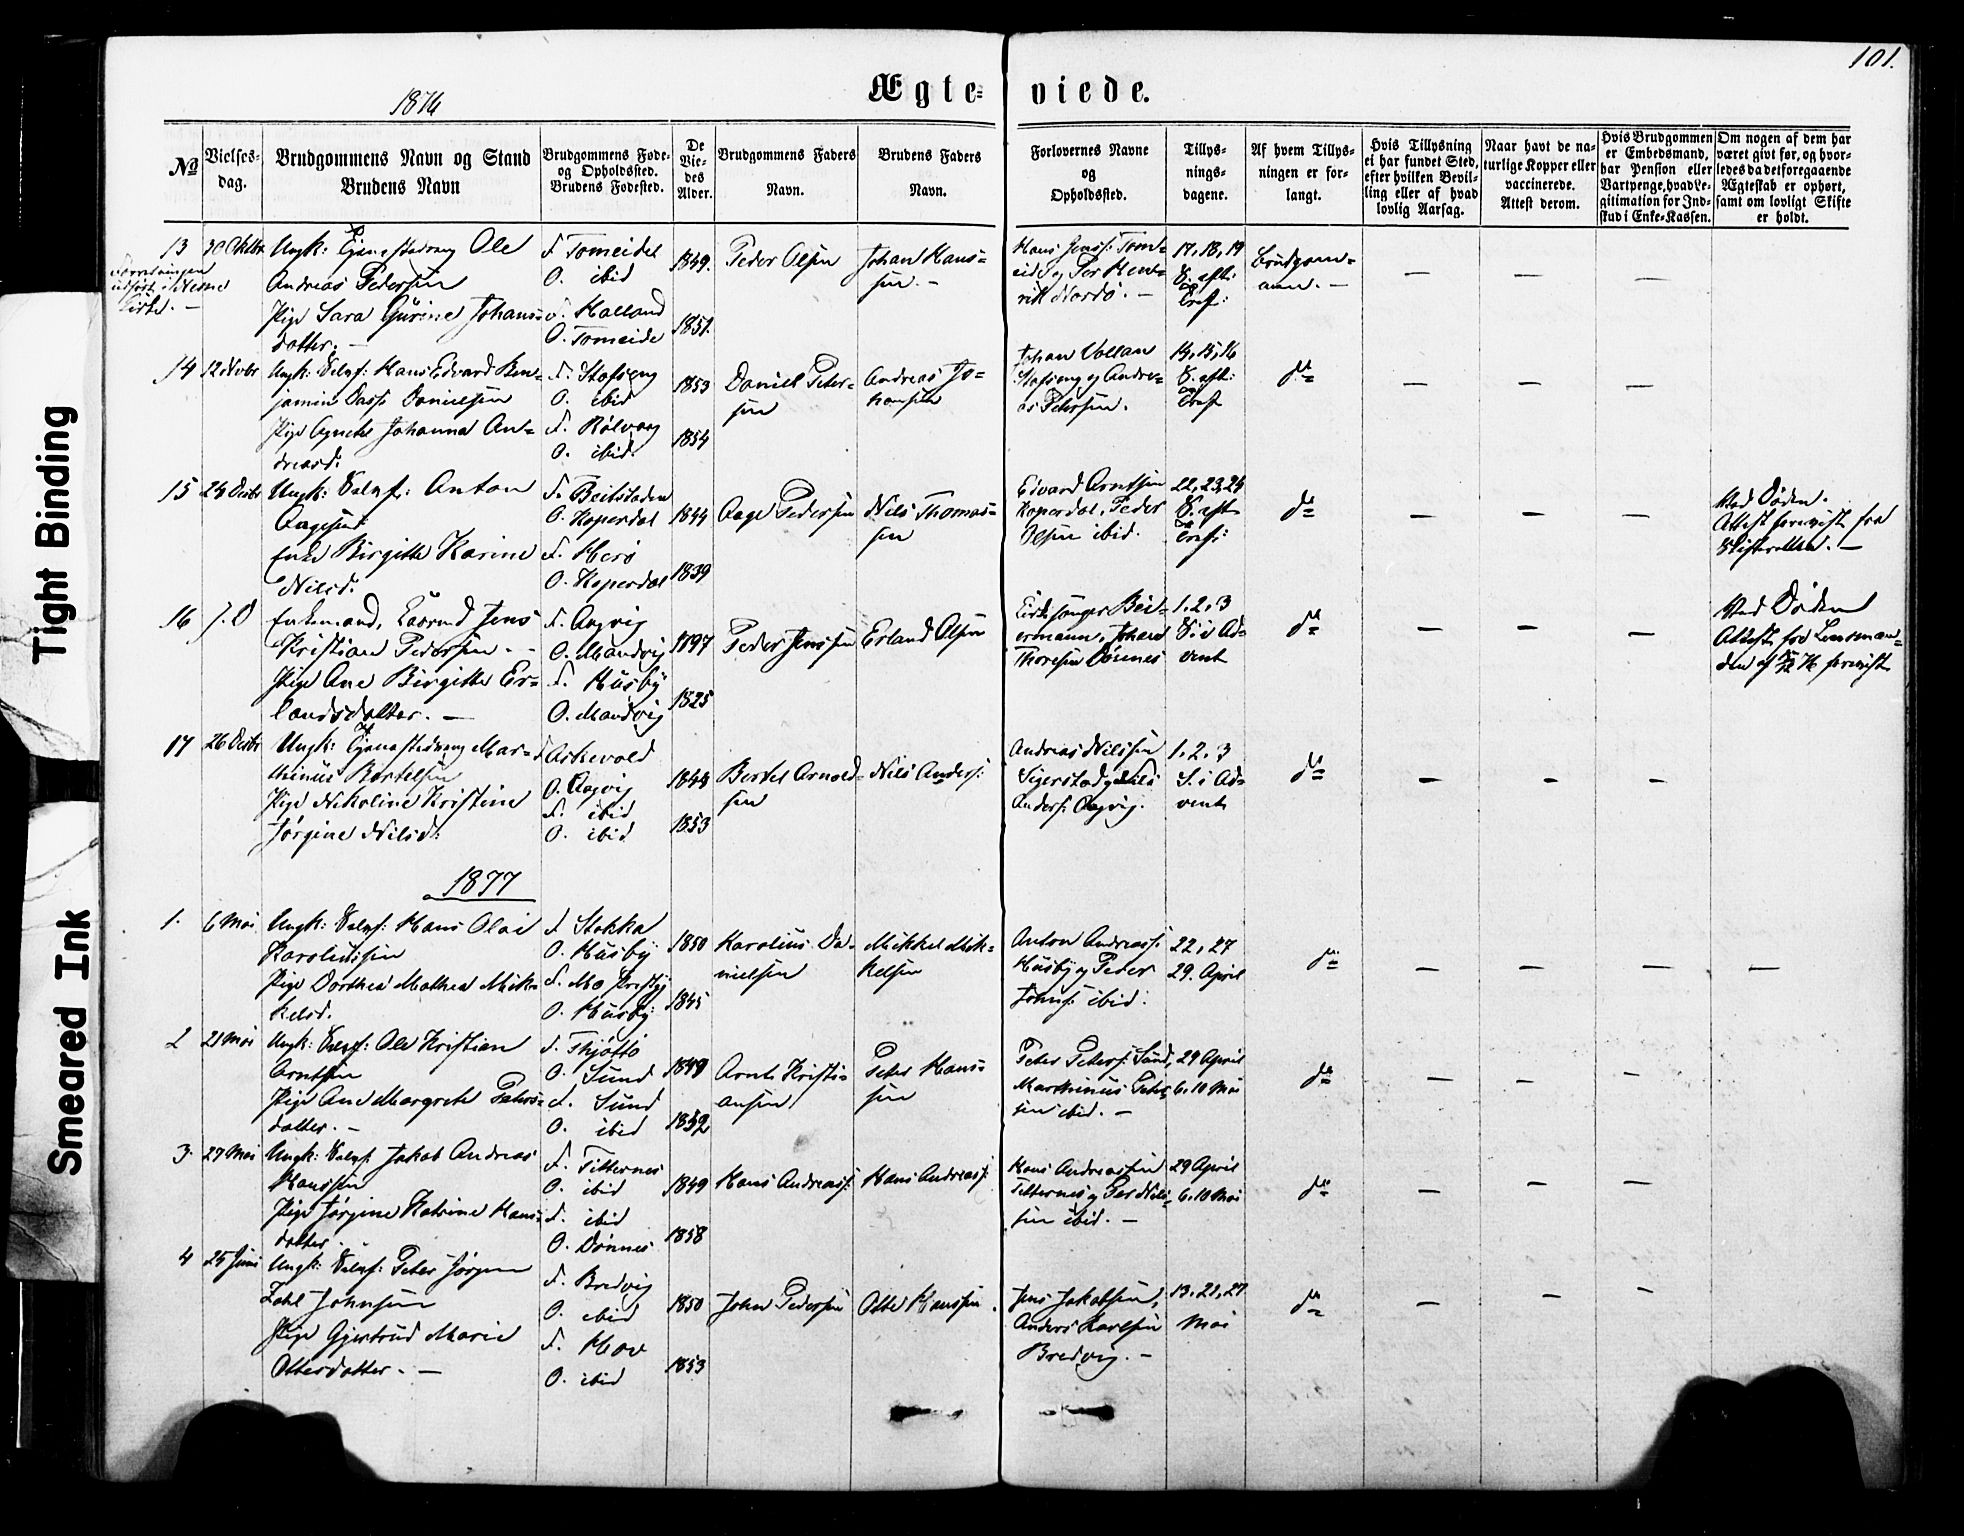 101.
Ægte- viede.
1876
No
Vielses-
dag.
Brudgommens Navn og Stand
Brudens Navn
Brudgommens Føde-
og Opholdssted.
Brudens Fødested.
De
Vie-
des
Alder.
Brudgommens Faders
Navn.
Brudens Faders
Navn.
Forlovernes Navne
og
Opholdssted.
Tillys-
nings-
dagene.
Af hvem Tillys-
ningen er for-
langt.
Hvis Tillysning
ei har fundet Sted,
efter hvilken Bevil-
ling eller af hvad
lovlig Aarsag.
Naar havt de na-
turlige Kopper eller
vaccinerede.
Attest derom.
Hvis Brudgommen
er Embedsmand,
har Pension eller
Vartpenge, hvad Le-
gitimation for Ind-
skud i Enke-Kassen.
Om nogen af dem har
været givt før, og hvor-
ledes da det foregaaende
Ægteskab er ophørt,
samt om lovligt Skifte
er holdt.
13 30 Oktbr Ungk: Tjenestedreng Ole
Andreas Pedersen
Pige Sara Gurine Johans-
datter. —
F. Tomeidet
O. ibid
F. Halland
O. Tomeide
1849.
1851.
Peder Olsen
Johan Hans-
sen. —
17, 18, 19
S. eft:
Tref:
Brudgom-
men. —
— — —
14 12 Novbr Ungk: Selvf: Hans Edvard Ben-
jamin Dass Danielsen
Pige Agnethe Johanna An-
dreasd:
F. Stofseng
O. ibid
F. Rølvaag
O. ibid.
1853
1854
Daniel Peter-
sen
Andreas Jo-
hansen
Johan Vollan
Stafseng og Andre-
as Petersen.
14, 15, 16
S. eft:
Tref
do
— — —
15 24 Desbr Ungk: Selvf: Anton
Aagesen
Enke Birgitte Karine
Nilsd.
F. Beitstaden
O. Koperdal
F. Herø
O. Koperdal
1844
1839
Aage Pedersen
Nils Thomas-
sen
Edvard Arntsen
Koperdal, Peder
Olsen ibid.
22, 23, 24
S. eft
Tref:
do
— — —
Ved Døden.
Attest forevist fra
Skifteretten. —
16 s. D Enkemand, Jens
Kristian Pedersen. —
Pige Ane Birgitte Er-
landsdatter. —
F. Aagvig
O. Mandvig
F. Husby
O. Mandvig
1825
Peder Jenssen
Erland Olsen
Kirkesanger Beier-
mann, Johan
Thoresen Dønnes
1. 2. 3
S. i Ad-
vent
do
— — —
Ved Døden
Attest fra Lensman-
den forevist
17 26 Desbr Ungk: Tjenestedreng Mar-
thinus Bertelsen
Pige Nikoline Kristine
Jørgine Nilsd:
Askevold
O. Aagvig
F. ibid
O. ibid
1848
1853
Bertel Arnold-
sen
Nils Anders:
Andreas Nilssen
Sigerstad og Nils
Anders: Aagvig.
1. 2. 3
S. i Ad-
vent
do
— — —
1877
1. 6 Mai Ungk: Selvf: Hans Olai
Karoliussen
Pige Dorthea Mathea Mik-
kelsd.
F. Stokka
O. Husby
F. Mo Prestgj
O. Husby
1850
1845
Karolius Da-
nielsen
Mikkel Mik-
kelsen
Anton Andreass:
Husby og Peder
Johns: ibid.
22, 27
29. April
do
— — — —
2 21 Mai Ungk: Selvf: Ole Kristian
Arntsen
Pige Ane Margrete Peters-
datter. —
F. Thjøttø
O. Sund
F. Sund
O. ibid
1849
1852
Arnt Kristi-
ansen
Peter Hans-
sen
Peter Peters: Sund,
Marthinus Peter-
sen ibid. —
29 April
6. 10 Mai
do
— — —
3. 27 Mai Ungk: Selvf: Jakob Andreas
Hanssen
Pige Jørgine Katrine Hans-
datter
F. Titternes
O. ibid
F. ibid
O. Dønnes
1849
1858
Hans Andreass:
Hans Andreass:
Hans Andreassen
Titternes og Per Nils-
sen ibid. —
29 April
6. 10 Mai
do
— — —
4 25 Juni Ungk: Selvf: Peter Jørgen
Zahl Johnsen
Pige Gjertrud Marie
Ottersdatter. —
F. Bredvig
O. ibid
F. Hov
O. ibid
1850
1853
John Pedersen
Otter Hanssen.
Jens Jakobsen,
Anders Karlsen
Bredvig. —
13, 21, 27
Mai
do
— — —
Tight Binding
Smeared Ink